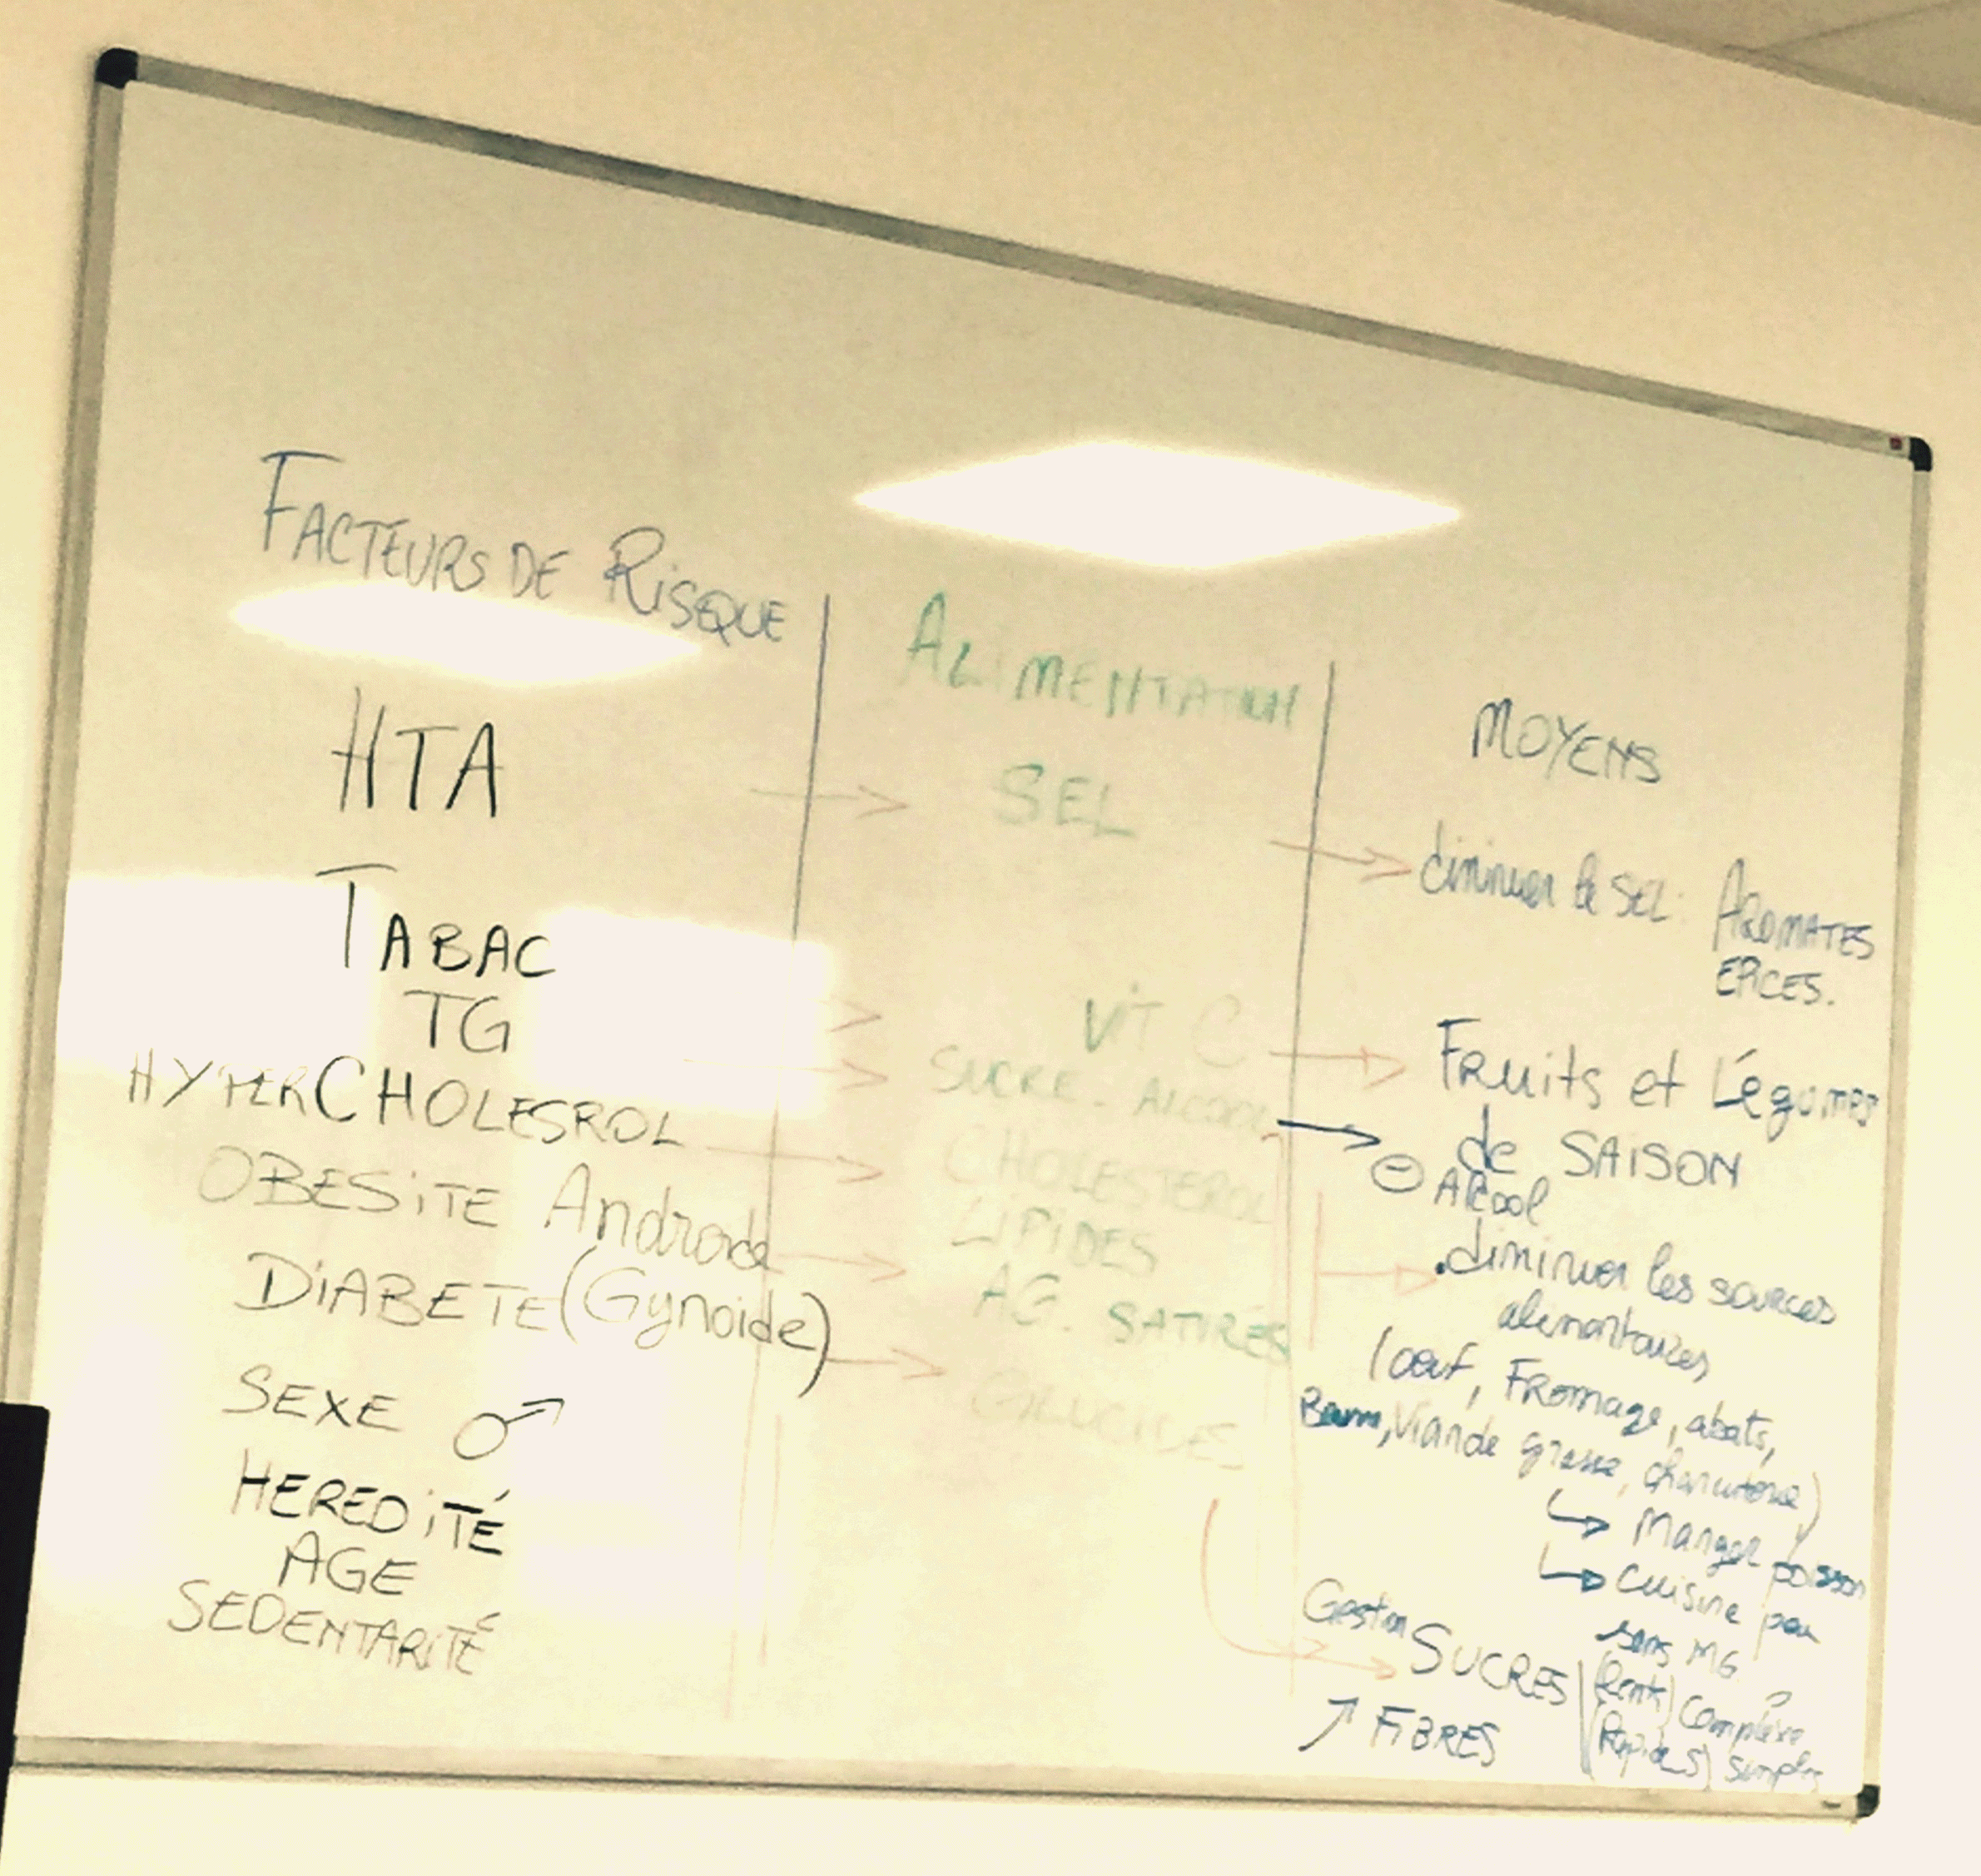 FACTEURS DE RISQUE
HTA
TABAC
TG
HYPERCHOLESROL
OBESITE Androide
DIABETE (Gynoide)
SEXE ♂
HEREDITÉ
AGE
SEDENTARITÉ
ALIMENTATION
SEL
VIT C
SUCRE - ALCOOL
CHOLESTEROL
LIPIDES
AG. SATURES
GLUCIDES
MOYENS
diminuer le SEL: AROMATES
EPICES.
FRuits et Légumes
de SAISON
⊖ Alcool
.diminuer les sources
alimentaires
(oeuf, FRomage, abats,
Viande grasse, charcuterie)
↳ Manger poisson
↳ cuisine peu
sans MG
Gestion SUCRES (lents) complexe
(Rapides) simples
↗ FIBRES